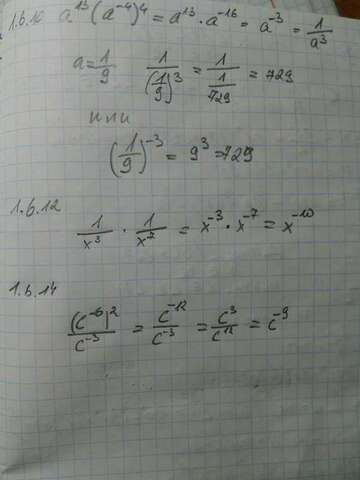 1.6.10 a¹³(a⁻⁴)⁴ = a¹³ · a⁻¹⁶ = a⁻³ = 1/a³
a = 1/9 1/(1/9)³ = 1/(1/729) = 729
или
(1/9)⁻³ = 9³ = 729
1.6.12
1/x³ · 1/x⁷ = x⁻³ · x⁻⁷ = x⁻¹⁰
1.6.14
(c⁻⁶)²/c⁻³ = c⁻¹²/c⁻³ = c³/c¹² = c⁻⁹